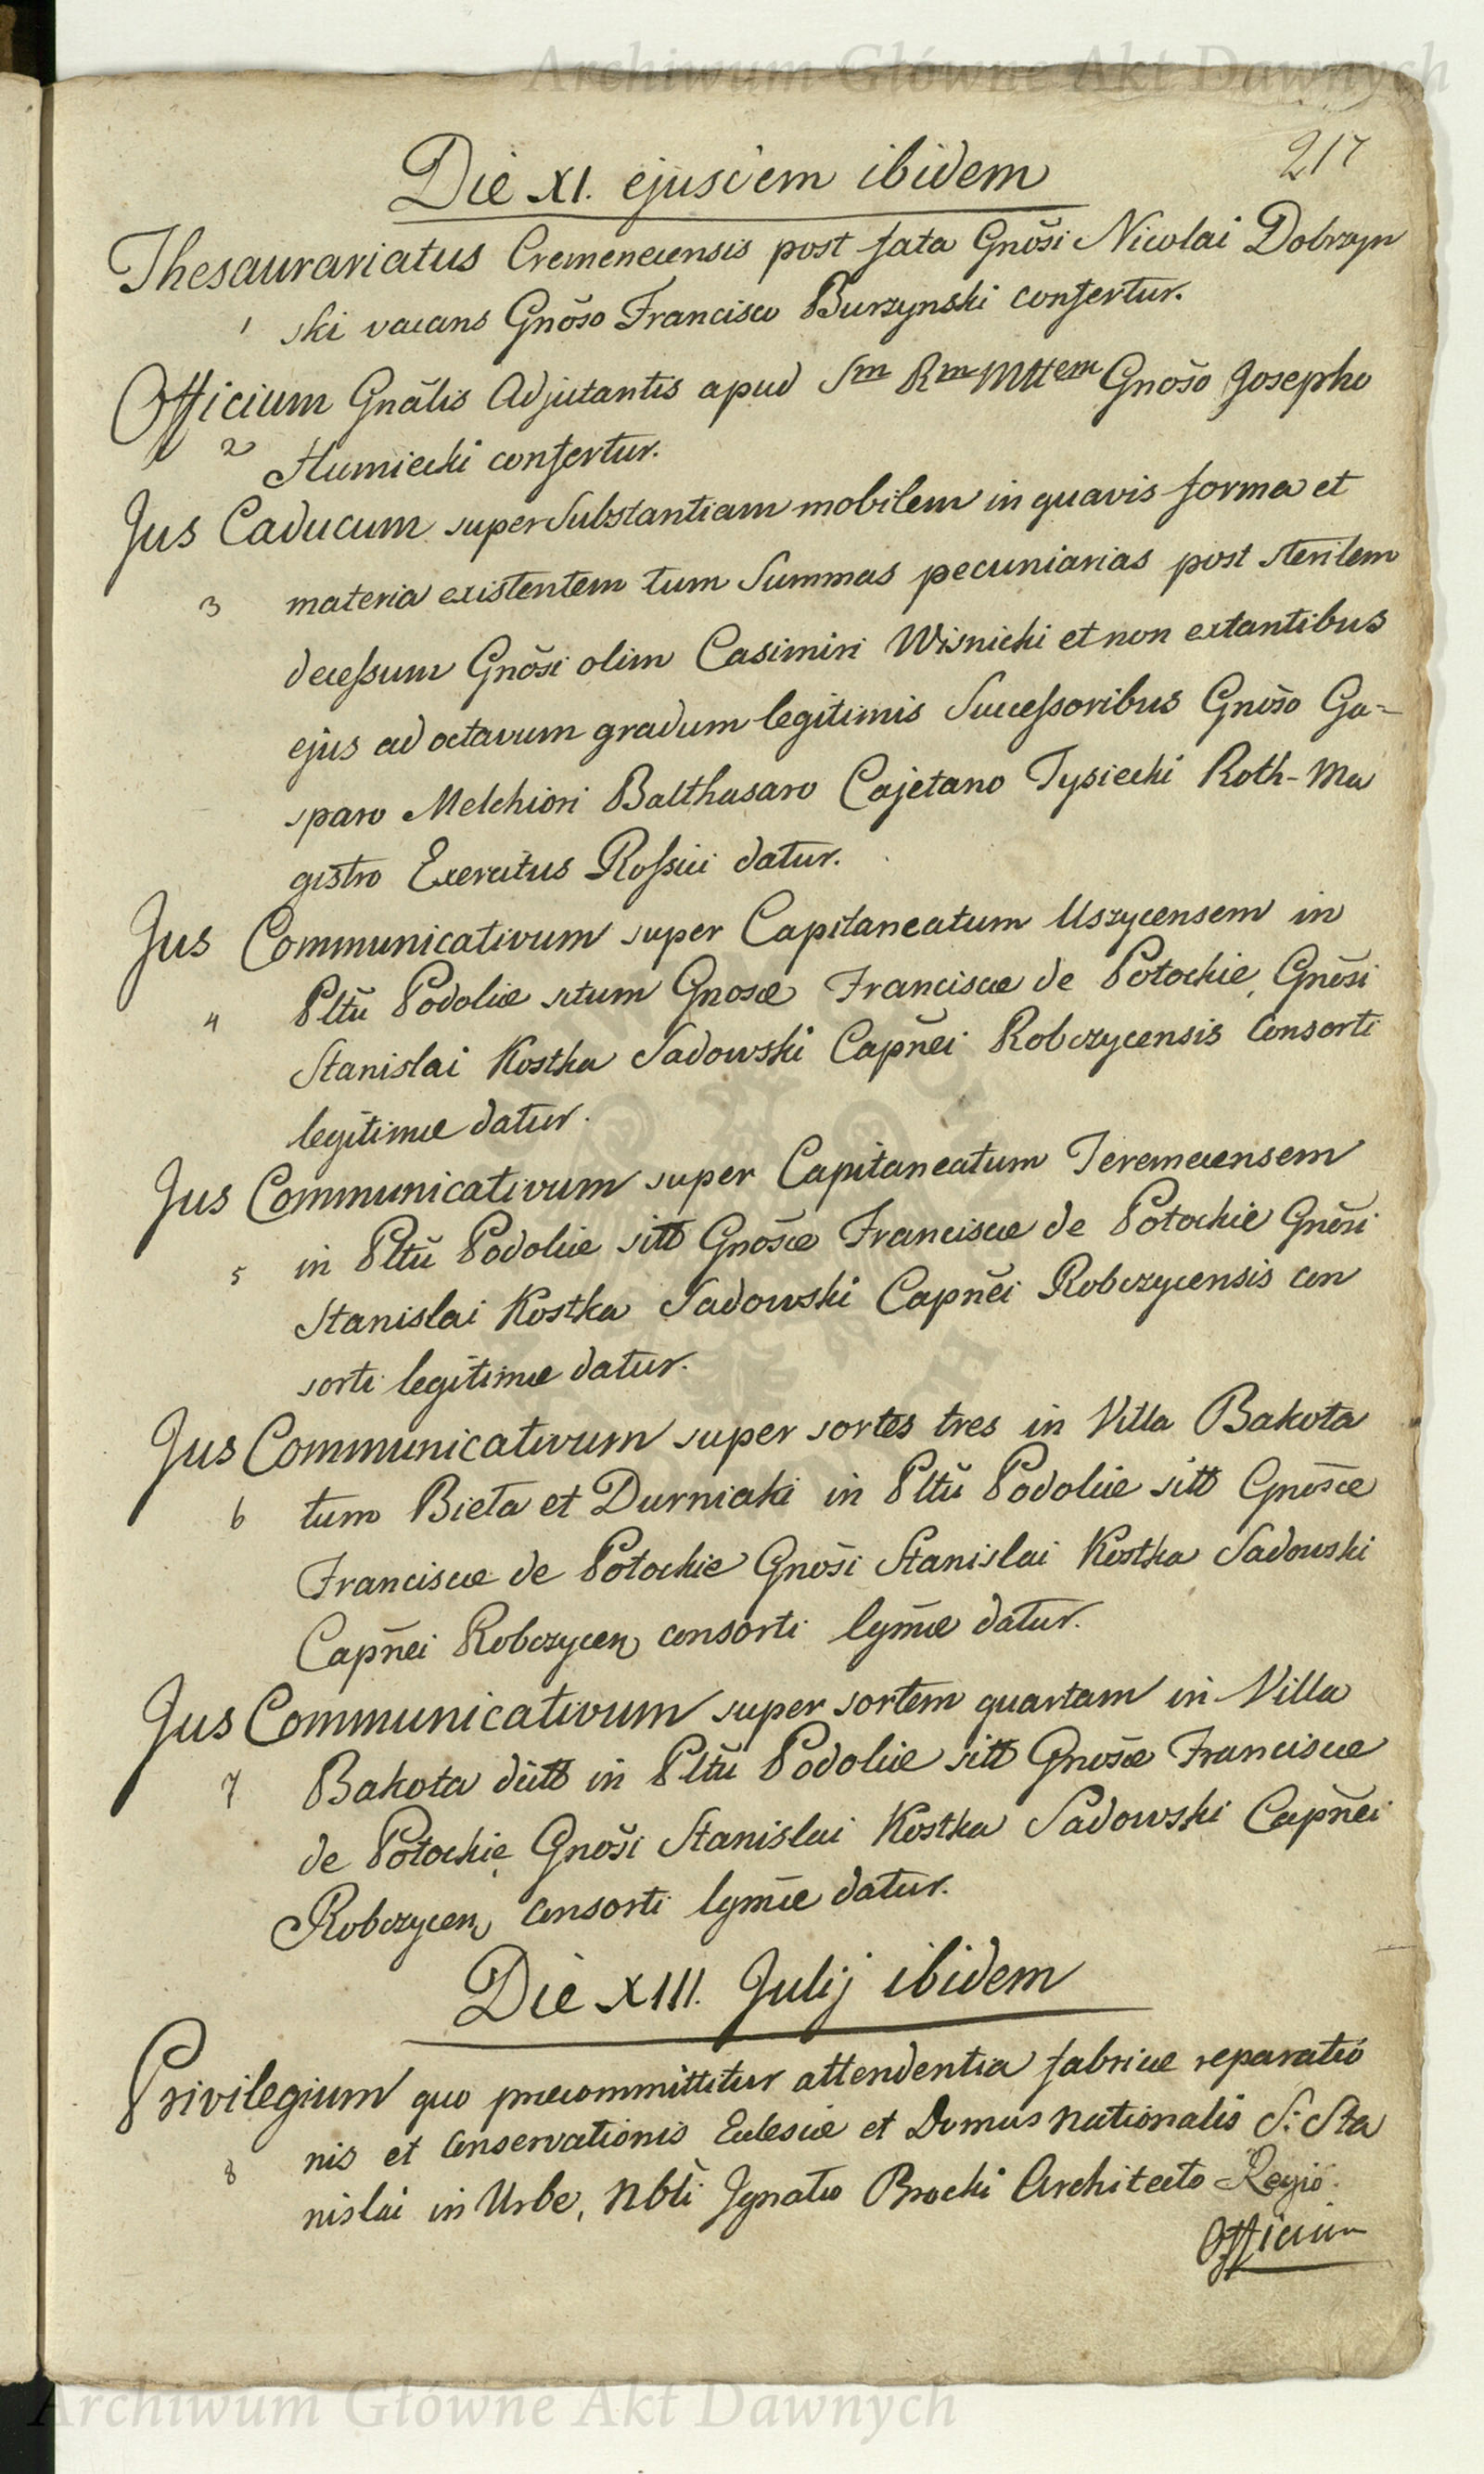 Archiwum Główne Akt Dawnych
217
Die XI. ejusdem ibidem
Thesaurariatus Cremenecensis post fata Gnõsi Nicolai Dobrzyn
1 ski vacans Gnõso Francisco Burzynski confertur.
Officium Gnãlis Adjutantis apud Sm Rm Mttem Gnõso Josepho
2 Humiecki confertur.
Jus Caducum super Substantiam mobilem in quavis forma et
3 materia existentem tum Summas pecuniarias post sterilem
decessum Gnõsi olim Casimiri Wisnicki et non extantibus
ejus ad octavum gradum legitimis Successoribus Gnõso Ga=
sparo Melchiori Balthasaro Cajetano Tysiecki Roth-Ma
gistro Exercitus Rossici datur.
Jus Communicativum super Capitaneatum Uszycensem in
4 Pltũ Podoliæ situm Gnosæ Franciscæ de Potockie, Gnõsi
Stanislai Kostka Sadowski Capñei Robczycensis Consorti
legitimæ datur.
Jus Communicativum super Capitaneatum Jeremecensem
5 in Pltũ Podoliæ sitt Gnõsæ Franciscæ de Potockie Gnõsi
Stanislai Kostka Sadowski Capñei Robczycensis con
sorti legitimæ datur.
Jus Communicativum super sortes tres in Villa Bakota
6 tum Bieta et Durniaki in Pltũ Podoliæ sitt Gnõsæ
Franciscæ de Potockie Gnõsi Stanislai Kostka Sadowski
Capñei Robczycen consorti lgmæ datur.
Jus Communicativum super sortem quartam in Villa
7 Bakota dictt in Pltũ Podoliæ sitt Gnõsæ Franciscæ
de Potockie Gnõsi Stanislai Kostka Sadowski Capñei
Robczycen, Consorti lgmæ datur.
Die XIII. Julij ibidem
Privilegium quo præcommittitur attendentia fabricæ reparatio
8 nis et Conservationis Eclesiæ et Domus Nationalis S. Sta
nislai in Urbe, Nbli Ignatio Brocki Architecto Regio.
Officium
Archiwum Główne Akt Dawnych